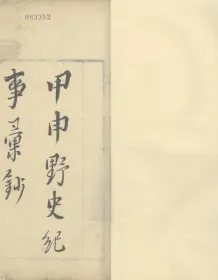 083352
甲申野史紀
事彙鈔